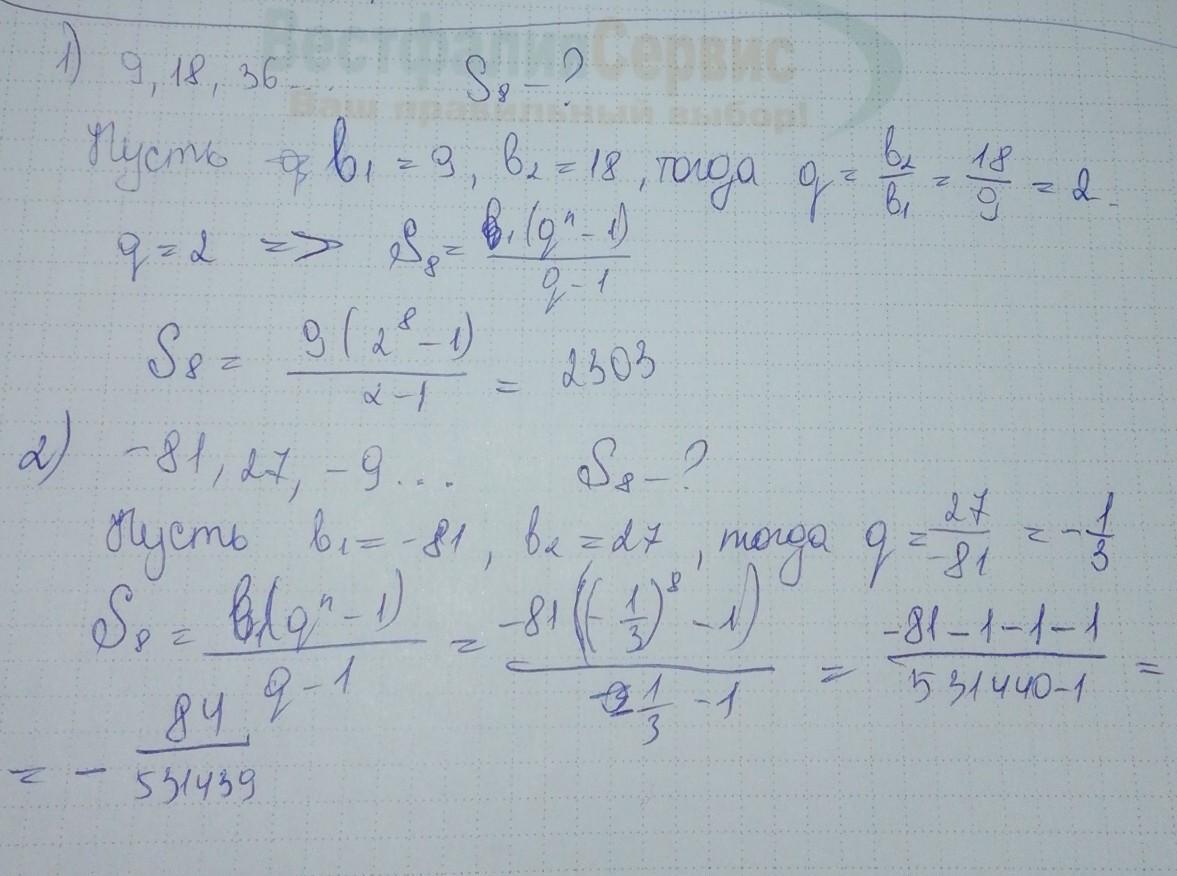 ВестфалияСервис
Ваш правильный выбор!
1) 9, 18, 36 ... S₈ - ?
Пусть b₁ = 9, b₂ = 18, тогда q = b₂/b₁ = 18/9 = 2.
q = 2 => S₈ = b₁(qⁿ - 1)/(q - 1)
S₈ = 9(2⁸ - 1)/(2 - 1) = 2303
2) -81, 27, -9 ... S₈ - ?
Пусть b₁ = -81, b₂ = 27, тогда q = 27/-81 = -1/3
S₈ = b₁(qⁿ - 1)/(q - 1) = -81((-1/3)⁸ - 1)/(1/3 - 1) = (-81 - 1 - 1 - 1)/(531440 - 1) =
= - 84/531439